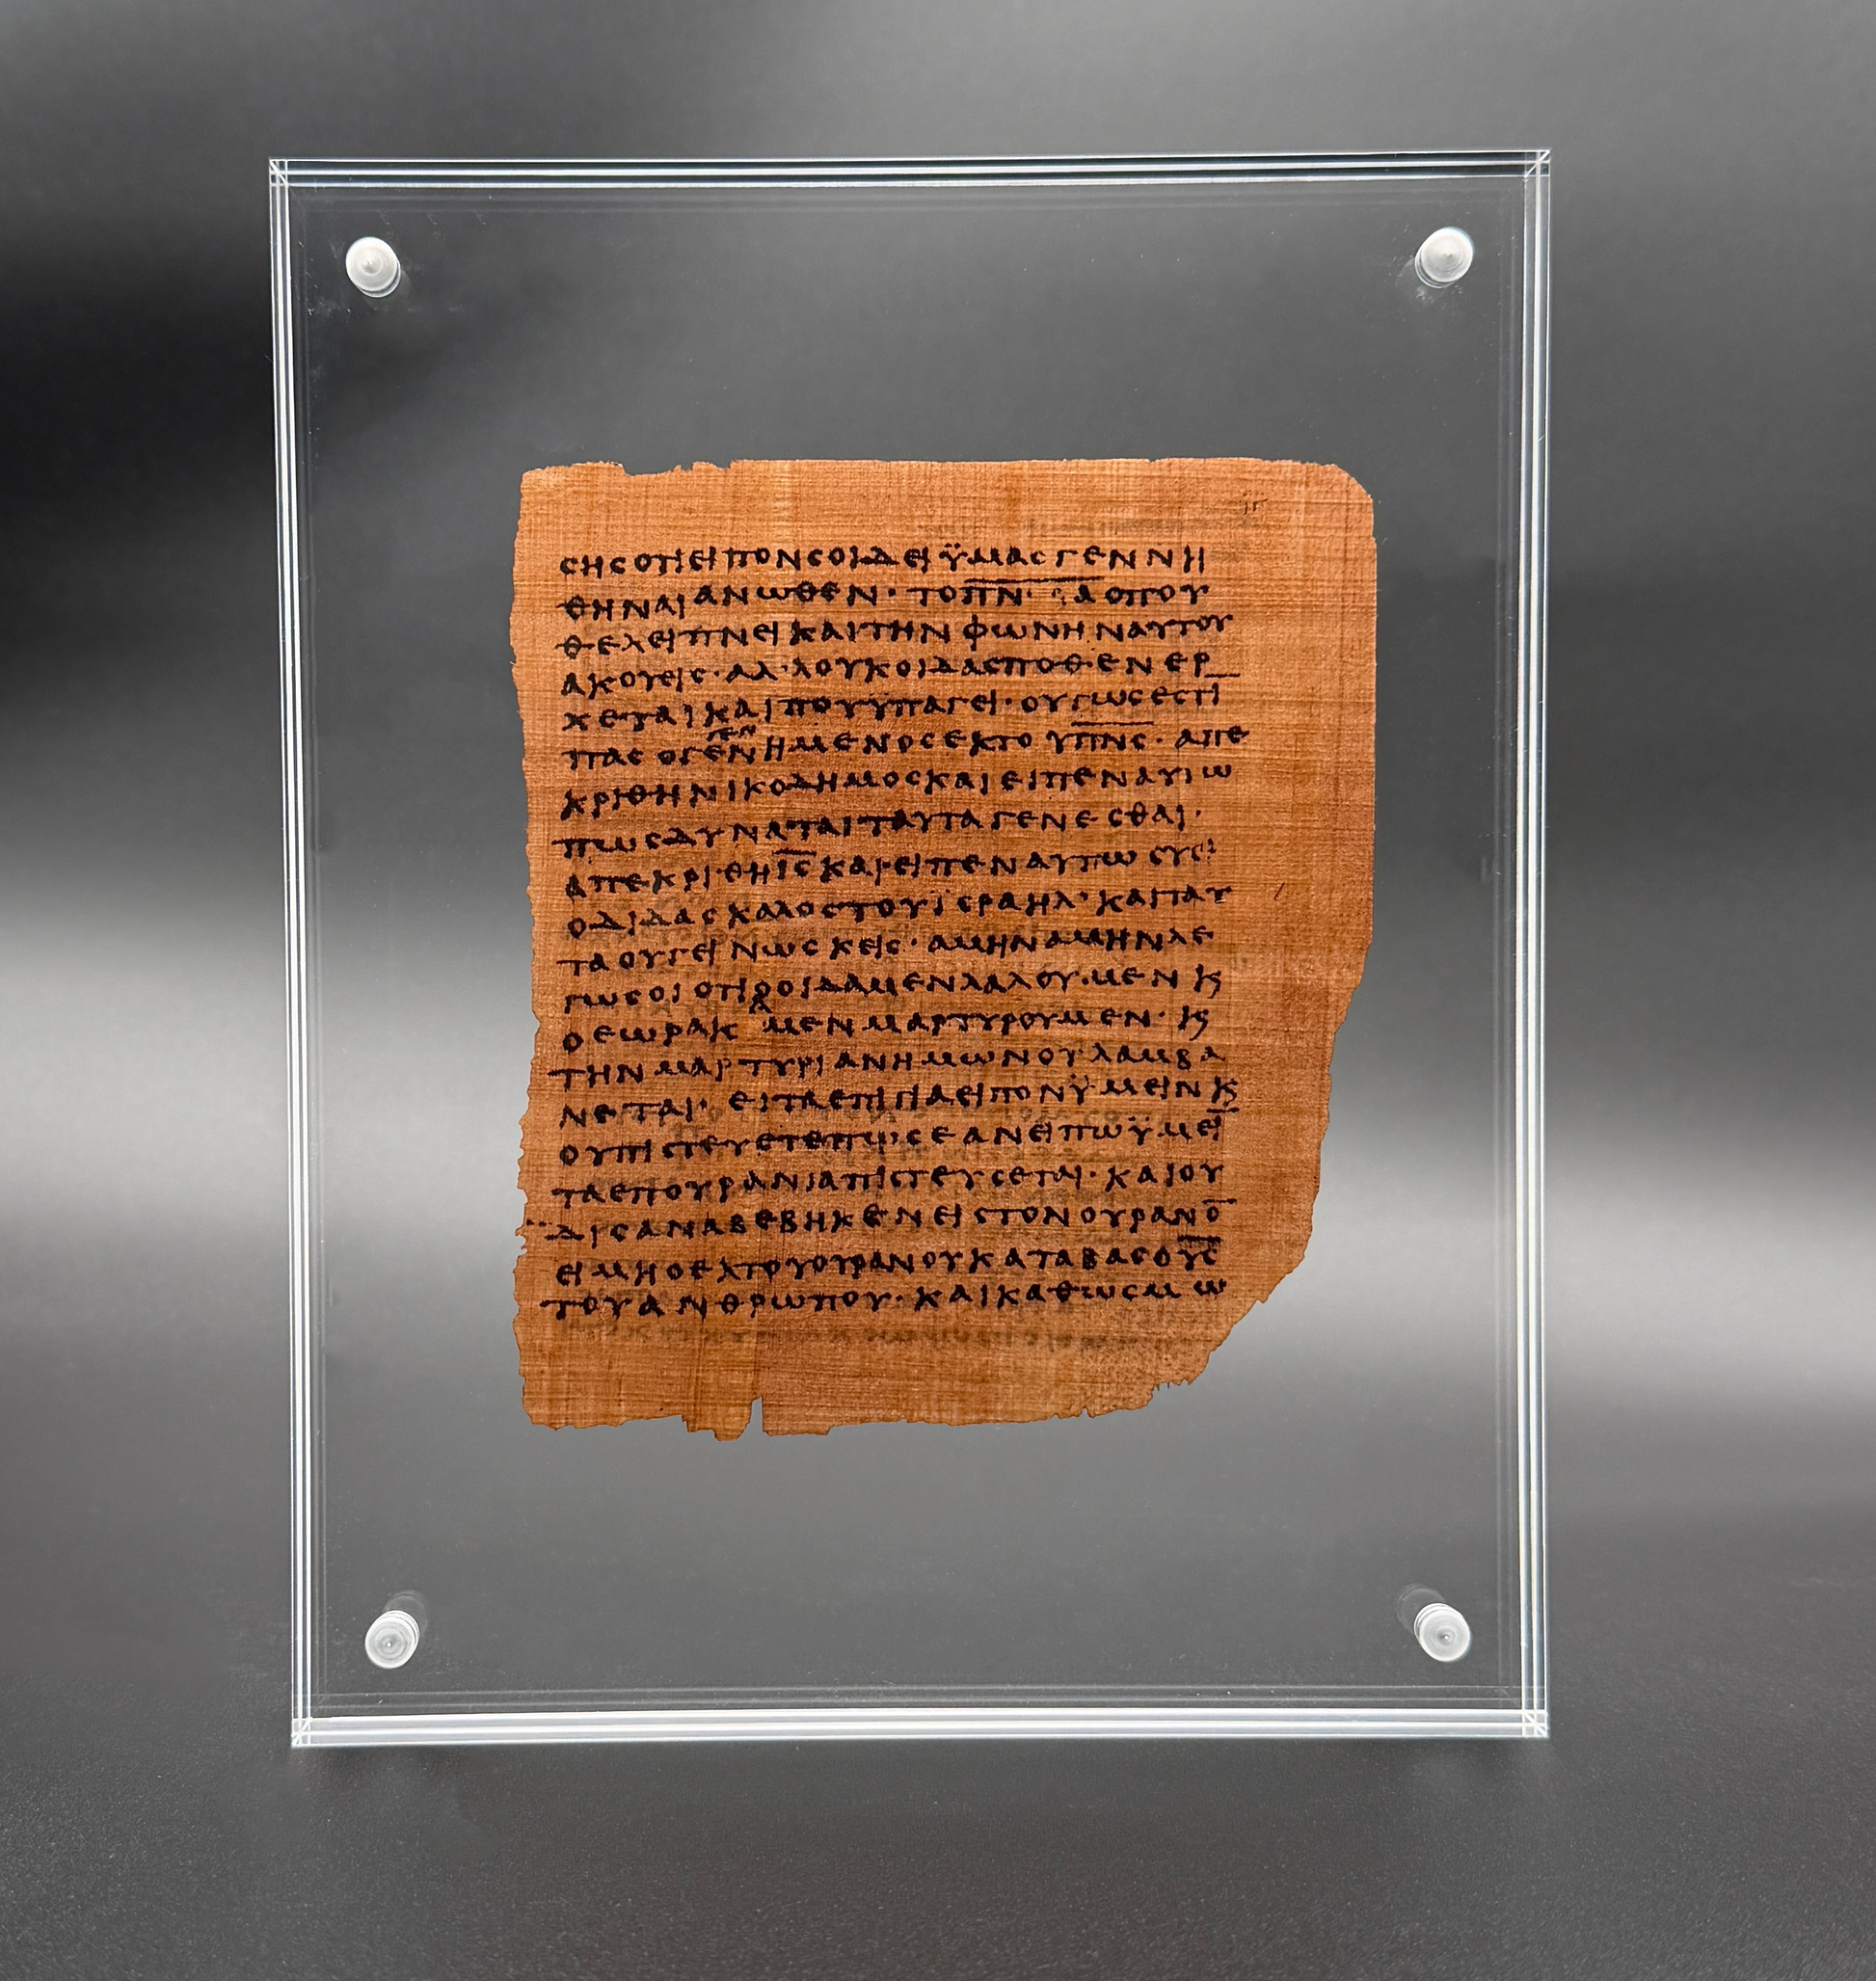 ιγ
ϲηϲοτιειπονϲοιδειϋμαϲγεννη
θηναιανωθεν· το π̅ν̅· α οπου
θελειπνεικαιτηνφωνηναυτου
ακουειϲ·αλ·λουκοιδαϲποθενερ
χεταικαιπουϋπαγει·ουτωϲεϲτι̅
παϲογεννημενοϲεκτουπ̅ν̅ϲ̅·απε
κριθηνικοδημοϲκαιειπεναυτω
πωϲδυναταιταυταγενεϲθαι·
απεκριθηι̅ϲ̅καιειπεναυτωϲυει
οδιδαϲκαλοϲτουϊϲραηλ·καιταυ
ταουγεινωϲκειϲ·αμηναμηνλε
γωϲοιοτιοοιδαμενλαλουμενκ̣
οεωρακαμενμαρτυρουμεν·κ̣
τηνμαρτυριανημωνουλαμβα
νεται·ειταεπιγιαειπονϋμεινκ̣
ουπιϲτευετεπωϲεανειπωϋμει̅
ταεπουρανιαπιϲτευϲεται·καιου
διϲαναβεβηκενειϲτονουρανο̅
ειμηοεκτουουρανουκαταβαϲου̅ϲ̅
τουανθρωπου·καικαθωϲμω